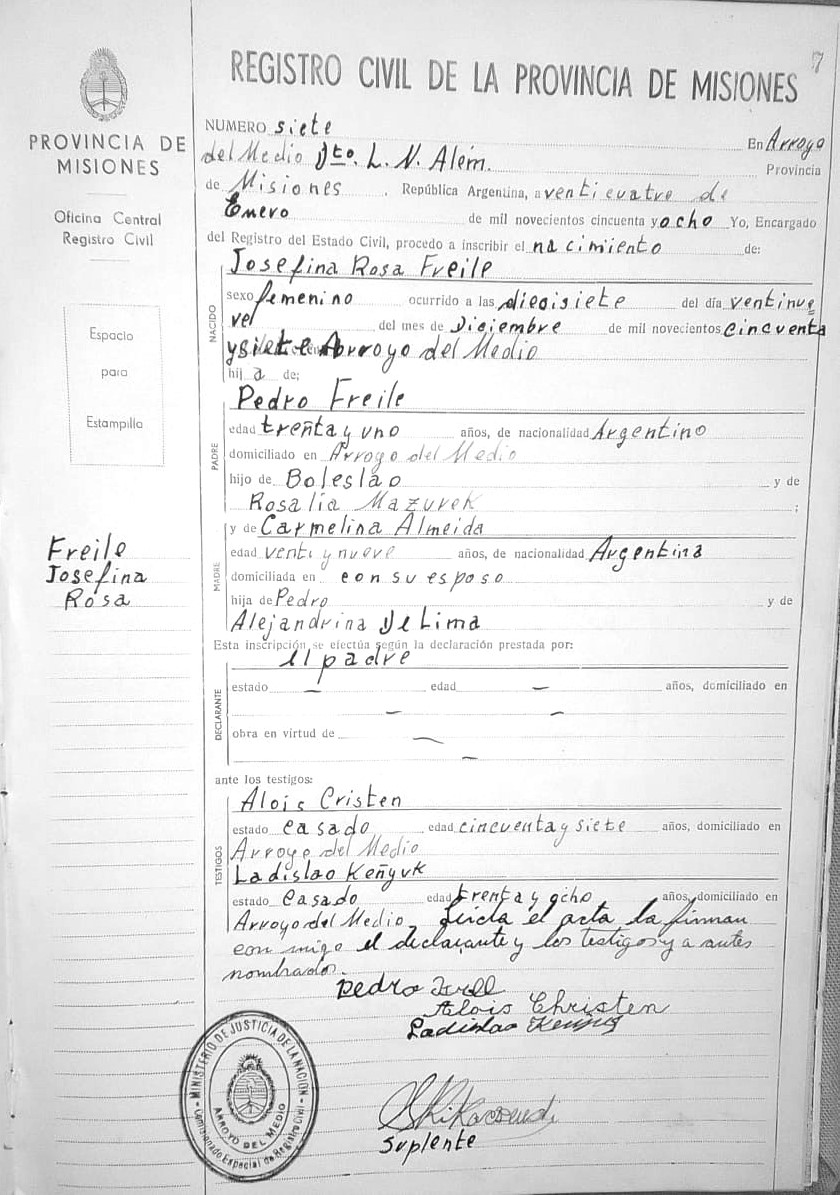 7
REGISTRO CIVIL DE LA PROVINCIA DE MISIONES
PROVINCIA DE
MISIONES
Oficina Central
Registro Civil
Espacio
para
Estampilla
Freile
Josefina
Rosa
NUMERO siete En Arroyo
del Medio Dto. L. N. Alem. Provincia
de Misiones . República Argentina, a venticuatro de
Enero de mil novecientos cincuenta y ocho Yo, Encargado
del Registro del Estado Civil, procedo a inscribir el nacimiento de:
NACIDO
Josefina Rosa Freile
sexo femenino ocurrido a las diecisiete del día ventinue
ve del mes de Diciembre de mil novecientos cincuenta
y siete Arroyo del Medio
hij a de:
PADRE
Pedro Freile
edad treñta y uno años, de nacionalidad Argentino
domiciliado en Arroyo del Medio
hijo de Boleslao y de
Rosalía Mazurek ;
MADRE
y de Carmelina Almeida
edad venti y nueve años, de nacionalidad Argentina
domiciliada en con su esposo
hija de Pedro y de
Alejandrina De Lima
Esta inscripción se efectúa según la declaración prestada por:
DECLARANTE
el padre
estado — edad — años, domiciliado en
— —
obra en virtud de —
—
ante los testigos:
TESTIGOS
Alois Cristen
estado casado edad cincuenta y siete años, domiciliado en
Arroyo del Medio
Ladislao Keñyuk
estado casado edad trenta y ocho años, domiciliado en
Arroyo del Medio, leida el acta la firman
con migo el declarante y los testigos y a antes
nombrados.
Pedro
Alois Christen
Ladislao
MINISTERIO DE JUSTICIA DE LA NACIÓN
ARROYO DEL MEDIO
Comisionado Especial de Registro Civil
Suplente